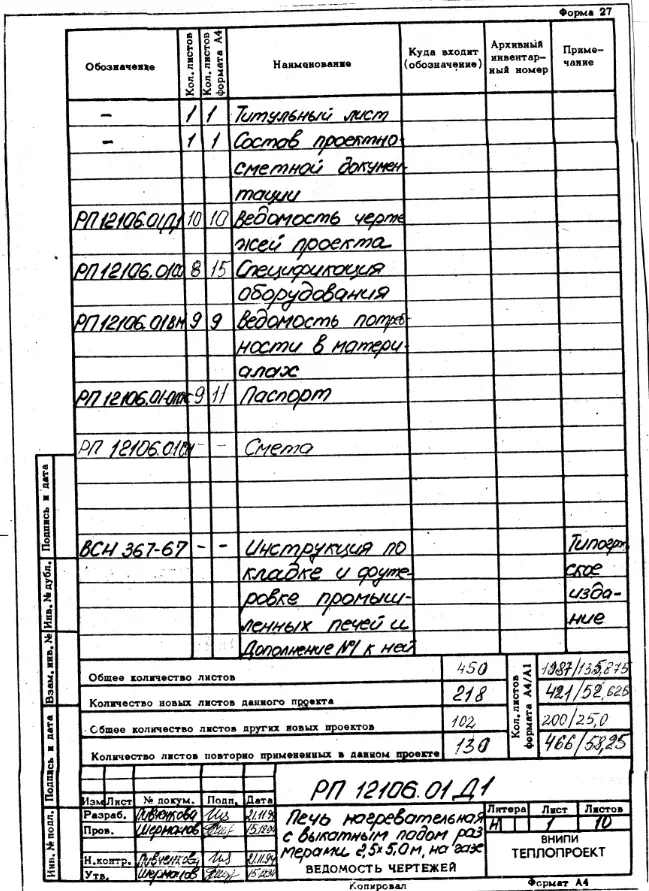 Форма 27
Обозначение Кол. листов Кол. листов формата А4 Наименование Куда входит (обозначение) Архивный инвентарный номер Примечание
– 1 1 Титульный лист
– 1 1 Состав проектно-
сметной докумен-
тации
РП12106.01Д1 10 10 Ведомость черте
жей проекта
РП12106.01СО 8 15 Спецификация
оборудования
РП12106.01ВМ 9 9 Ведомость потреб
ности в матери-
алах
РП12106.01- 9 11 Паспорт
РП 12106.01СМ – – Смета
ВСН 367-67 – – Инструкция по Типогр
кладке и футе- ское
ровке промыш- изда-
ленных печей и ние
Дополнение №1 к ней
Общее количество листов 450 Кол. листов формата А4/А1 1087/135,875
Количество новых листов данного проекта 218 421/52,625
Общее количество листов других новых проектов 102 200/25,0
Количество листов повторно примененных в данном проекте 130 466/58,25
Подпись и дата
Инв. № дубл.
Взам. инв. №
Подпись и дата
Инв. № подл.
РП 12106.01 Д1
Изм Лист № докум. Подп. Дата
Разраб. 21.11.94
Пров. Шерманов
Н.контр. 21.11.94
Утв. Шерманов
Печь нагревательная
с выкатным подом раз
мерами 2,5х5,0м, на газе
ВЕДОМОСТЬ ЧЕРТЕЖЕЙ
Литера Лист Листов
И 1 10
ВНИПИ
ТЕПЛОПРОЕКТ
Копировал Формат А4